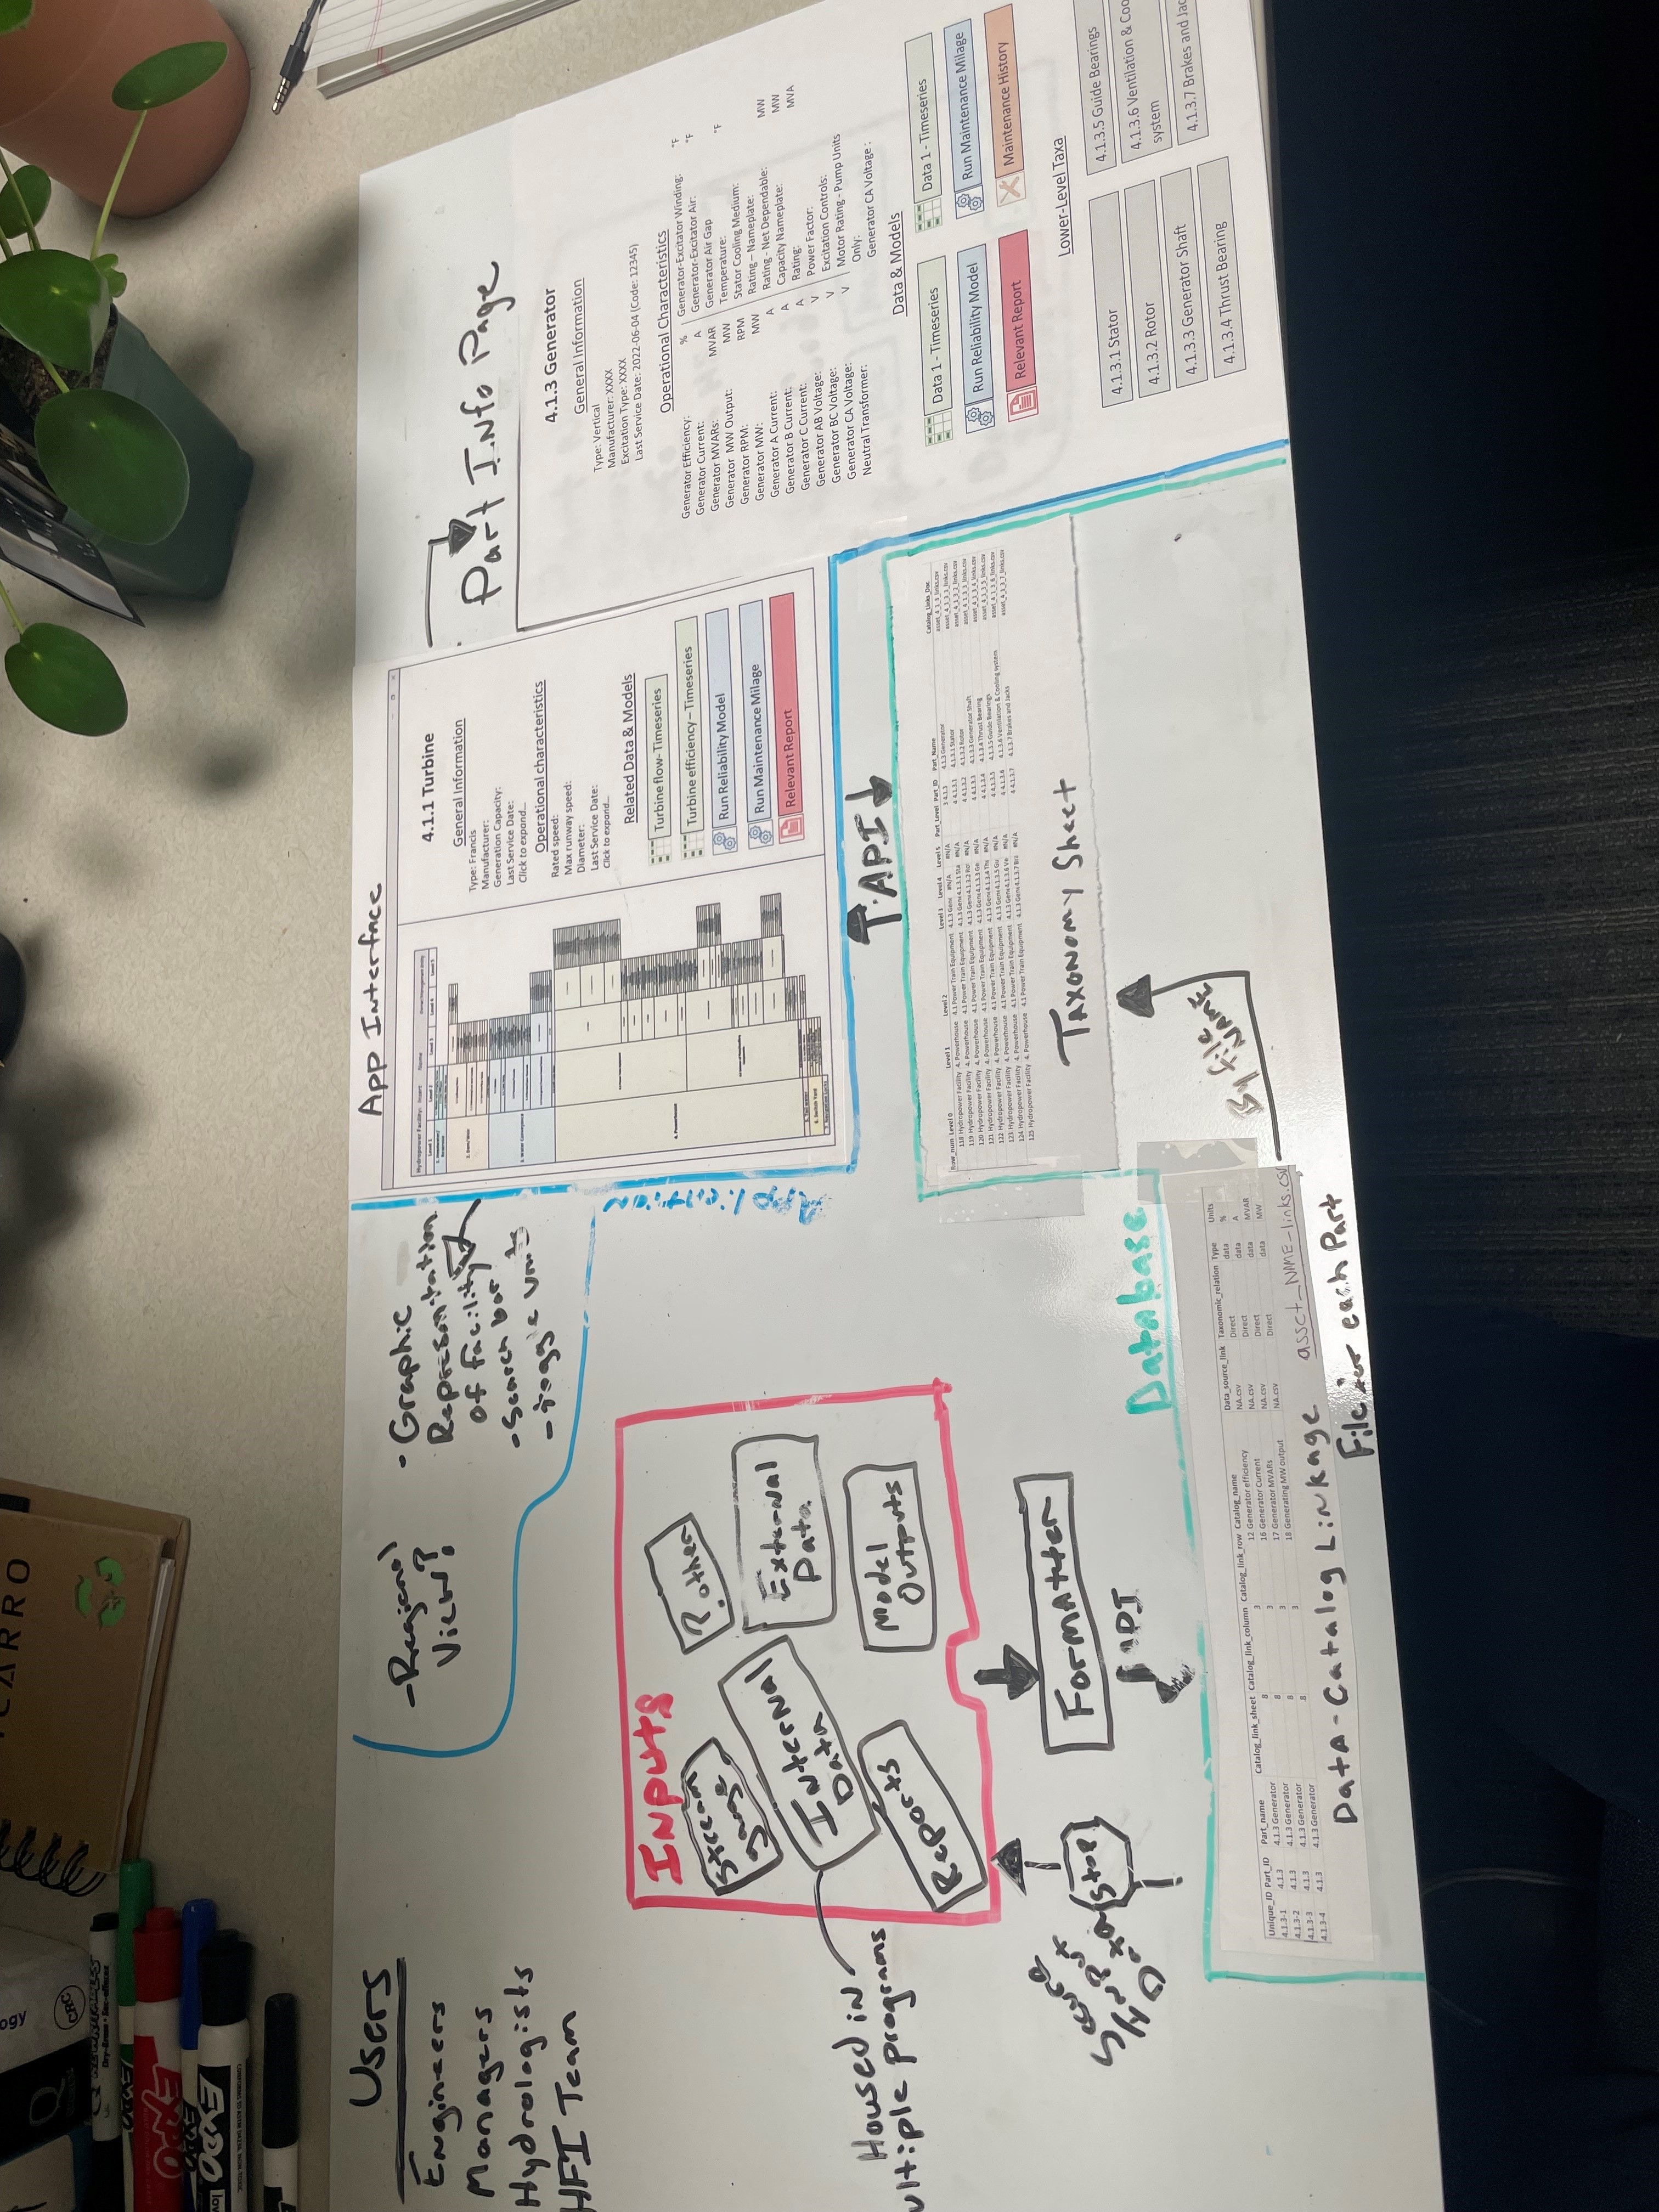 CARRO
CRC
REWRITABLES
Dry-Erase • Sec-effaces
EXPO
EXPO
EXPO
EXPO
low
CONFORMS TO ASTM D4236. NON-TOXIC
Users
Engineers
Managers
Hydrologists
HFI Team
-Regional
View?
• Graphic
Representation
of facility
- Search bar
- toggle units
Application
App Interface
Hydropower Facility: Insert Name
Owner/Management Entity
Level 1 Level 2 Level 3 Level 4 Level 5
2. Dam/Weir
3. Water Conveyance
4. Powerhouse
6. Switch Yard
7. Navigation Locks
4.1.1 Turbine
General Information
Type: Francis
Manufacturer:
Generation Capacity:
Last Service Date:
Click to expand...
Operational characteristics
Rated speed:
Max runway speed:
Diameter:
Last Service Date:
Click to expand...
Related Data & Models
Turbine flow- Timeseries
Turbine efficiency – Timeseries
Run Reliability Model
Run Maintenance Milage
Relevant Report
Part Info Page
4.1.3 Generator
General Information
Type: Vertical
Manufacturer: XXXX
Excitation Type: XXXX
Last Service Date: 2022-06-04 (Code: 12345)
Operational Characteristics
Generator Efficiency: %
Generator Current: A
Generator MVARs: MVAR
Generator MW Output: MW
Generator RPM: RPM
Generator MW: MW
Generator A Current: A
Generator B Current: A
Generator C Current: A
Generator AB Voltage: V
Generator BC Voltage: V
Generator CA Voltage: V
Neutral Transformer:
Generator-Excitator Winding: °F
Generator-Excitator Air: °F
Generator Air Gap
Temperature: °F
Stator Cooling Medium:
Rating – Nameplate:
Rating - Net Dependable: MW
Capacity Nameplate: MW
Rating: MVA
Power Factor:
Excitation Controls:
Motor Rating - Pump Units
Only:
Generator CA Voltage :
Data & Models
Data 1 - Timeseries
Data 1 - Timeseries
Run Reliability Model
Run Maintenance Milage
Relevant Report
Maintenance History
Lower-Level Taxa
4.1.3.1 Stator
4.1.3.2 Rotor
4.1.3.3 Generator Shaft
4.1.3.4 Thrust Bearing
4.1.3.5 Guide Bearings
4.1.3.6 Ventilation & Coo
system
4.1.3.7 Brakes and Jac
Inputs
Stream
gauge
? other
Internal
Data
External
Data
Reports
Model
Outputs
Housed in
ultiple programs
Secure
Input
Data
Stop
Formatter
API
API
Database
Row_num Level 0 Level 1 Level 2 Level 3 Level 4 Level 5 Part_Level Part_ID Part_Name Catalog_Links_Doc
118 Hydropower Facility 4. Powerhouse 4.1 Power Train Equipment 4.1.3 Gene #N/A #N/A 3 4.1.3 4.1.3 Generator asset_4_1_3_links.csv
119 Hydropower Facility 4. Powerhouse 4.1 Power Train Equipment 4.1.3 Gene 4.1.3.1 Sta #N/A 4 4.1.3.1 4.1.3.1 Stator asset_4_1_3_1_links.csv
120 Hydropower Facility 4. Powerhouse 4.1 Power Train Equipment 4.1.3 Gene 4.1.3.2 Ro #N/A 4 4.1.3.2 4.1.3.2 Rotor asset_4_1_3_2_links.csv
121 Hydropower Facility 4. Powerhouse 4.1 Power Train Equipment 4.1.3 Gene 4.1.3.3 Ge #N/A 4 4.1.3.3 4.1.3.3 Generator Shaft asset_4_1_3_3_links.csv
122 Hydropower Facility 4. Powerhouse 4.1 Power Train Equipment 4.1.3 Gene 4.1.3.4 Th #N/A 4 4.1.3.4 4.1.3.4 Thrust Bearing asset_4_1_3_4_links.csv
123 Hydropower Facility 4. Powerhouse 4.1 Power Train Equipment 4.1.3 Gene 4.1.3.5 Gu #N/A 4 4.1.3.5 4.1.3.5 Guide Bearings asset_4_1_3_5_links.csv
124 Hydropower Facility 4. Powerhouse 4.1 Power Train Equipment 4.1.3 Gene 4.1.3.6 Ve #N/A 4 4.1.3.6 4.1.3.6 Ventilation & Cooling system asset_4_1_3_6_links.csv
125 Hydropower Facility 4. Powerhouse 4.1 Power Train Equipment 4.1.3 Gene 4.1.3.7 Bra #N/A 4 4.1.3.7 4.1.3.7 Brakes and Jacks asset_4_1_3_7_links.csv
Taxonomy Sheet
By file
NAME
Unique_ID Part_ID Part_name Catalog_link_sheet Catalog_link_column Catalog_link_row Catalog_name Data_source_link Taxonomic_relation Type Units
4.1.3-1 4.1.3 4.1.3 Generator 8 3 12 Generator efficiency NA.csv Direct data %
4.1.3-2 4.1.3 4.1.3 Generator 8 3 16 Generator Current NA.csv Direct data A
4.1.3-3 4.1.3 4.1.3 Generator 8 3 17 Generator MVARs NA.csv Direct data MVAR
4.1.3-4 4.1.3 4.1.3 Generator 8 3 18 Generating MW output NA.csv Direct data MW
Data-Catalog Linkage
asset_NAME_links.csv
File for each Part